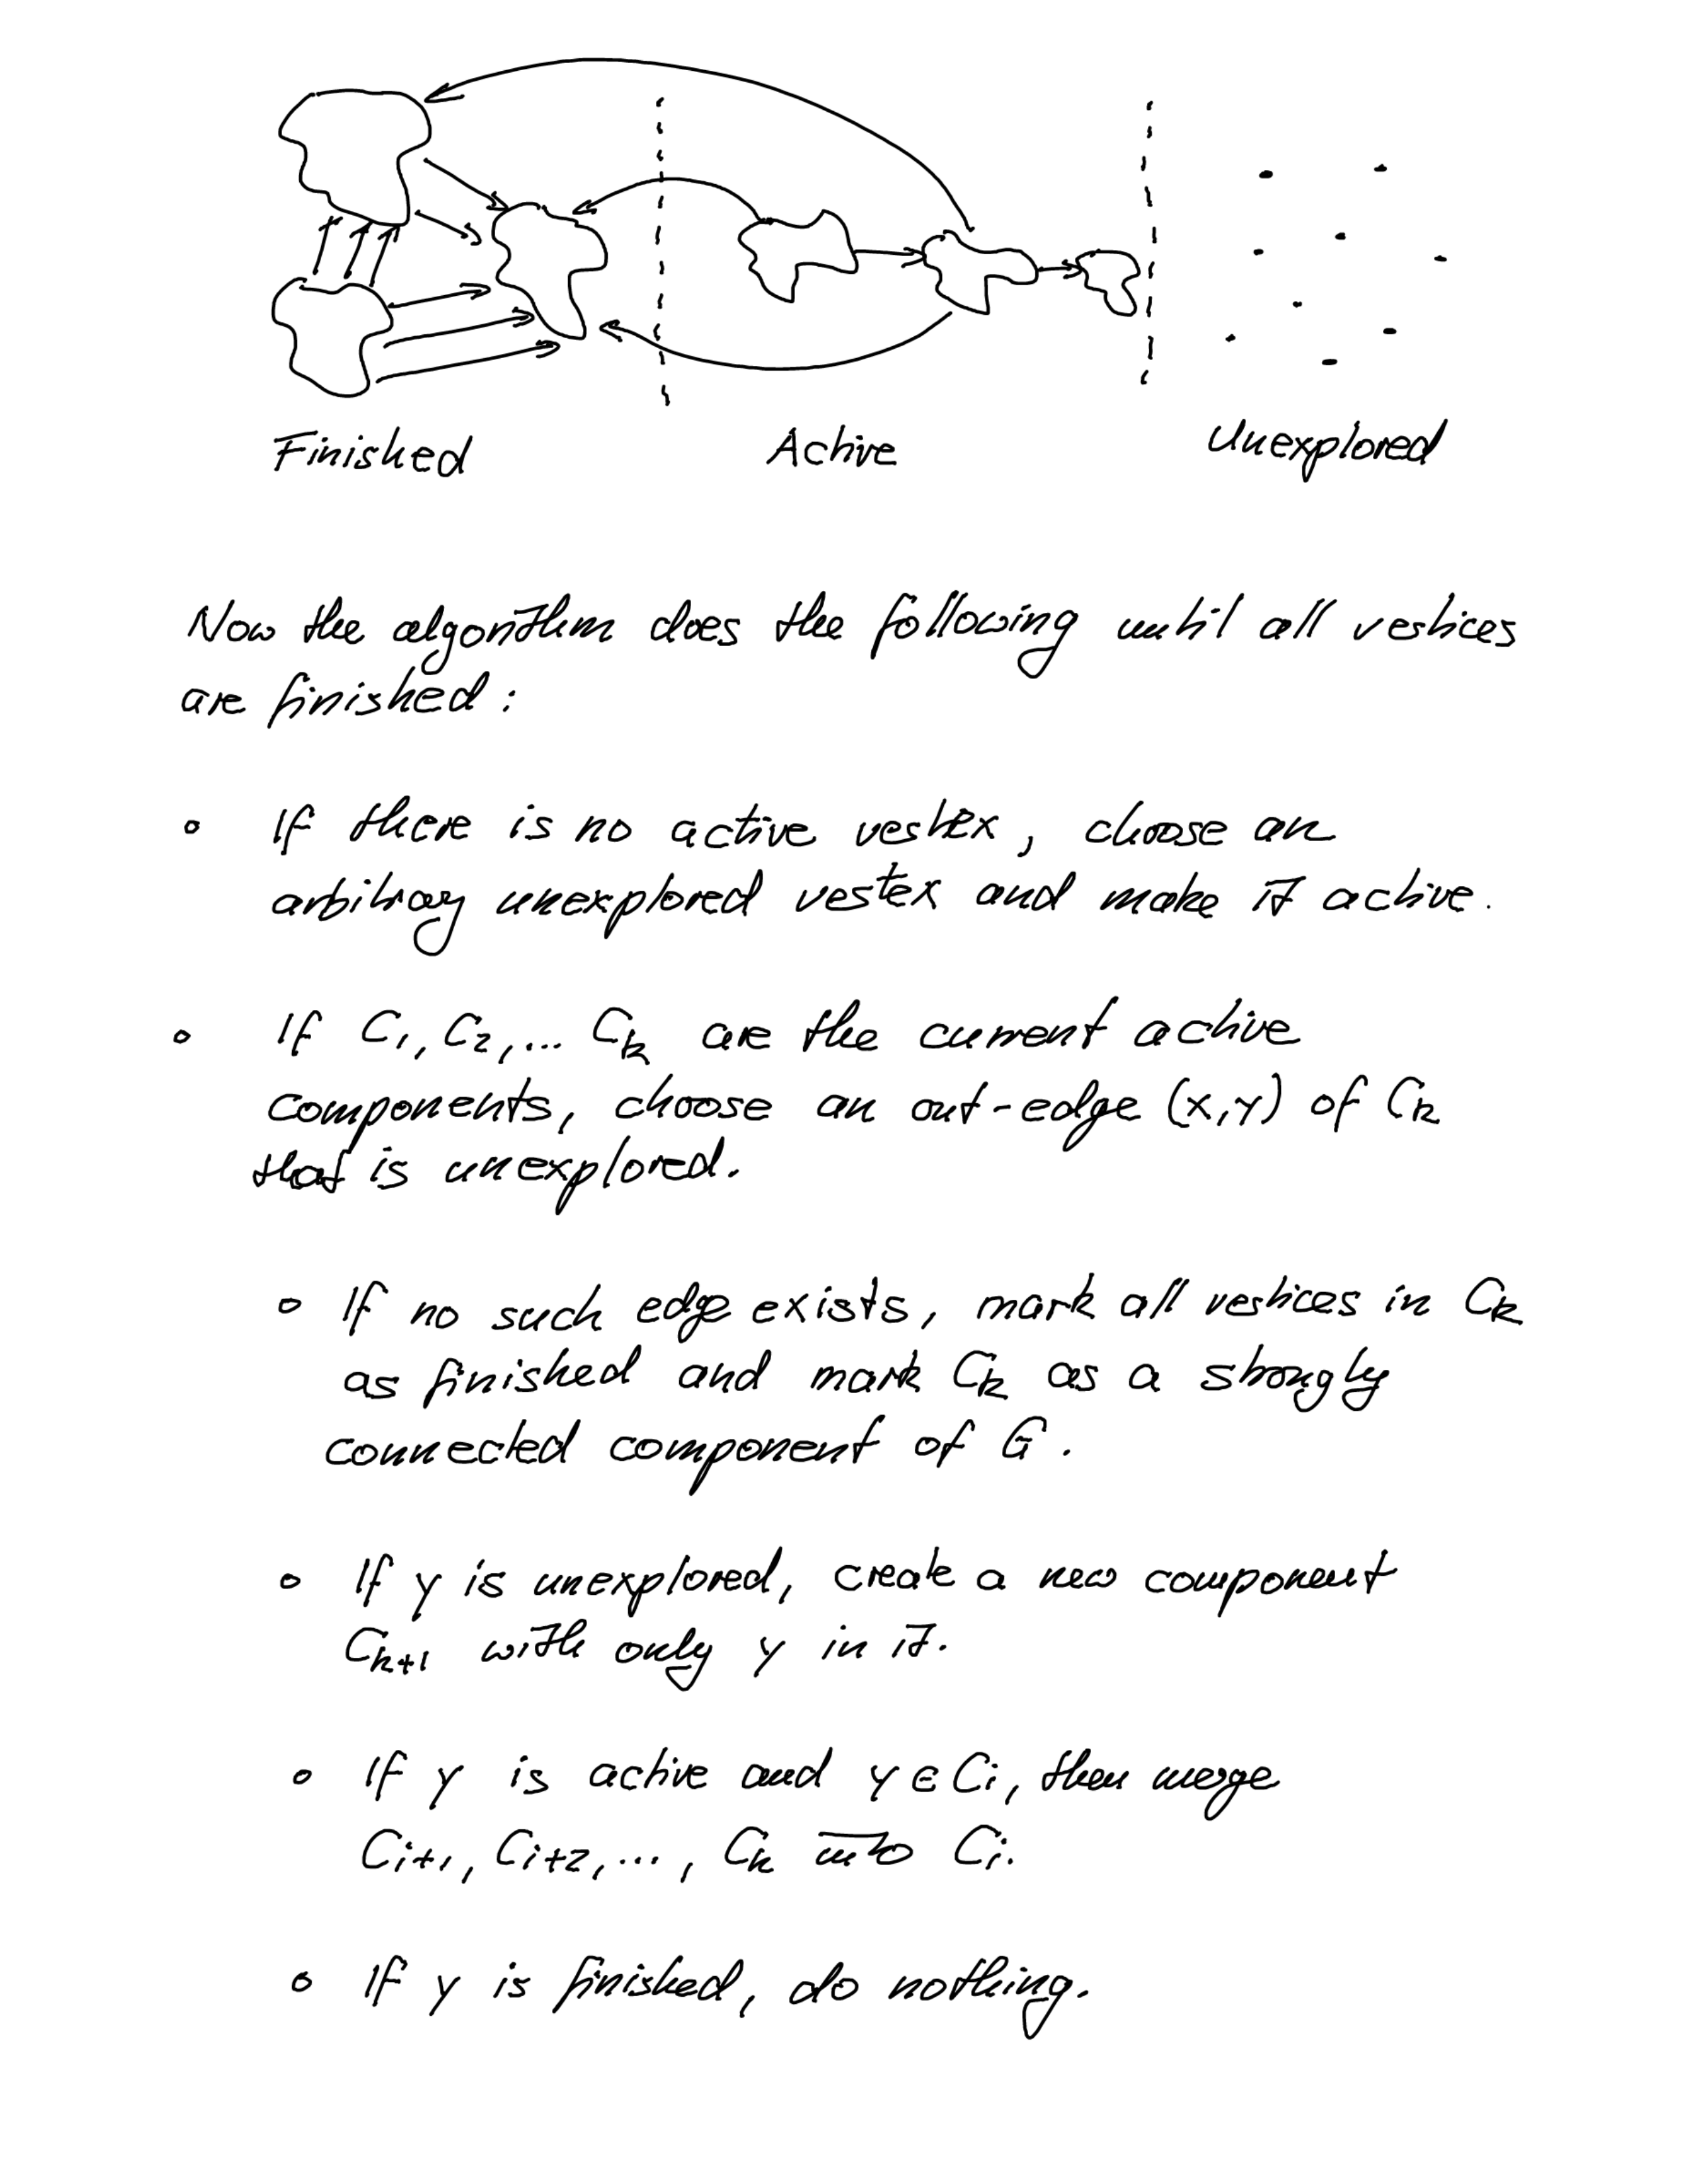 Finished Active Unexplored
Now the algorithm does the following until all vertices
are finished:
◦ If there is no active vertex, choose an
arbitrary unexplored vertex and make it active.
◦ If C₁, C₂, ... Cₖ are the current active
components, choose an out-edge (x,y) of Cₖ
that is unexplored.
◦ If no such edge exists, mark all vertices in Cₖ
as finished and mark Cₖ as a strongly
connected component of G.
◦ If y is unexplored, create a new component
Cₖ₊₁ with only y in it.
◦ If y is active and y ∈ Cᵢ, then merge
Cᵢ₊₁, Cᵢ₊₂, ..., Cₖ into Cᵢ.
◦ If y is finished, do nothing.